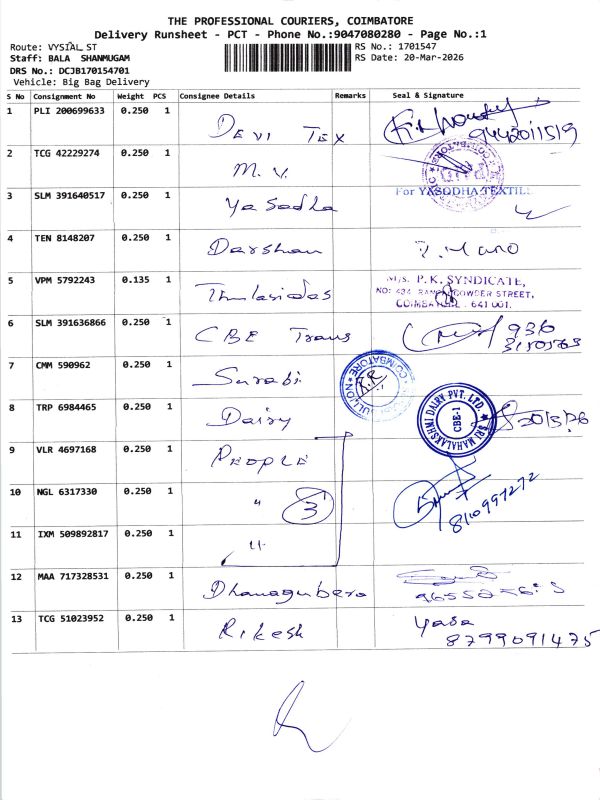 THE PROFESSIONAL COURIERS, COIMBATORE
Delivery Runsheet - PCT - Phone No.:9047080280 - Page No.:1
Route: VYSIAL ST
RS No.: 1701547
Staff: BALA SHANMUGAM
RS Date: 20-Mar-2026
DRS No.: DCJB170154701
Vehicle: Big Bag Delivery
S No Consignment No Weight PCS Consignee Details Remarks Seal & Signature
1 PLI 200699633 0.250 1 Devi Tex 9442011519
2 TCG 42229274 0.250 1 M. V. COIMBATORE
3 SLM 391640517 0.250 1 Yasodha For YASODHA TEXTILE
4 TEN 8148207 0.250 1 Darshan P. Mano
5 VPM 5792243 0.135 1 Thulasidas M/s. P. K. SYNDICATE,
NO: 434 GOWDER STREET,
COIMBATORE. 641 001.
6 SLM 391636866 0.250 1 CBE Trans 936
7 CMM 590962 0.250 1 Surabi COIMBATORE
8 TRP 6984465 0.250 1 Dairy SRI MAHALAKSHMI DAIRY PVT. LTD. CBE-1 20/3/26
9 VLR 4697168 0.250 1 PEOPLE
10 NGL 6317330 0.250 1 " 3 8110997272
11 IXM 509892817 0.250 1 "
12 MAA 717328531 0.250 1 Dhanagubera
13 TCG 51023952 0.250 1 Rikesh Yasa
8799091475